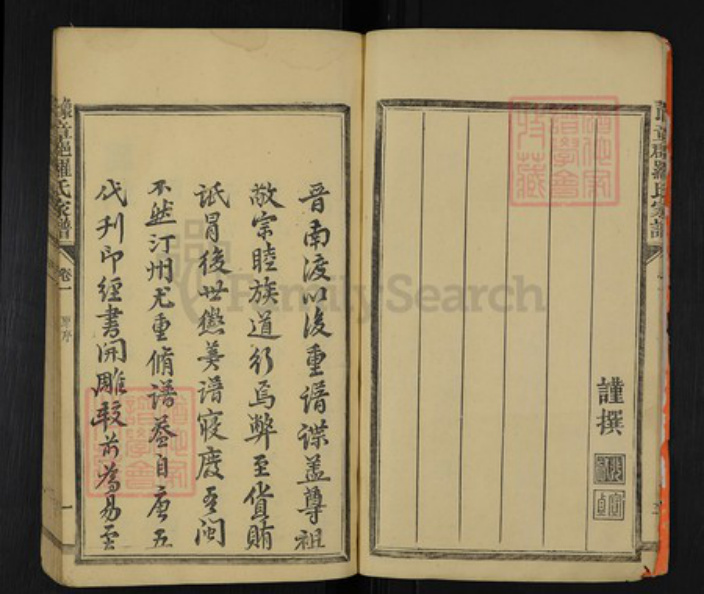 謹撰
晉南渡以後重譜諜蓋尊祖
敬宗睦族道行焉弊至貨賄
詆冒後世懲羹譜寖廢吾閩
不然汀州尤重脩譜蓋自唐五
代刊印經書開雕較前為易至
豫章郡羅氏家譜
卷一
原序
一
FamilySearch